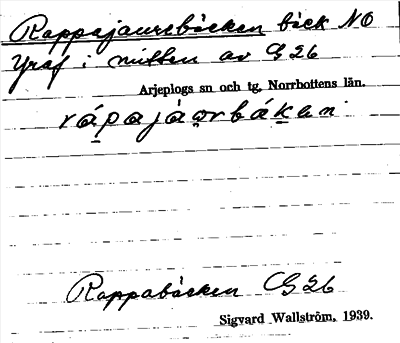 Rappajaurebäcken bäck NO
Yraf i mitten av G 26
Arjeplogs sn och tg, Norrbottens län.
rápajàorbák̲an
Rappabäcken G 26
Sigvard Wallström, 1939.